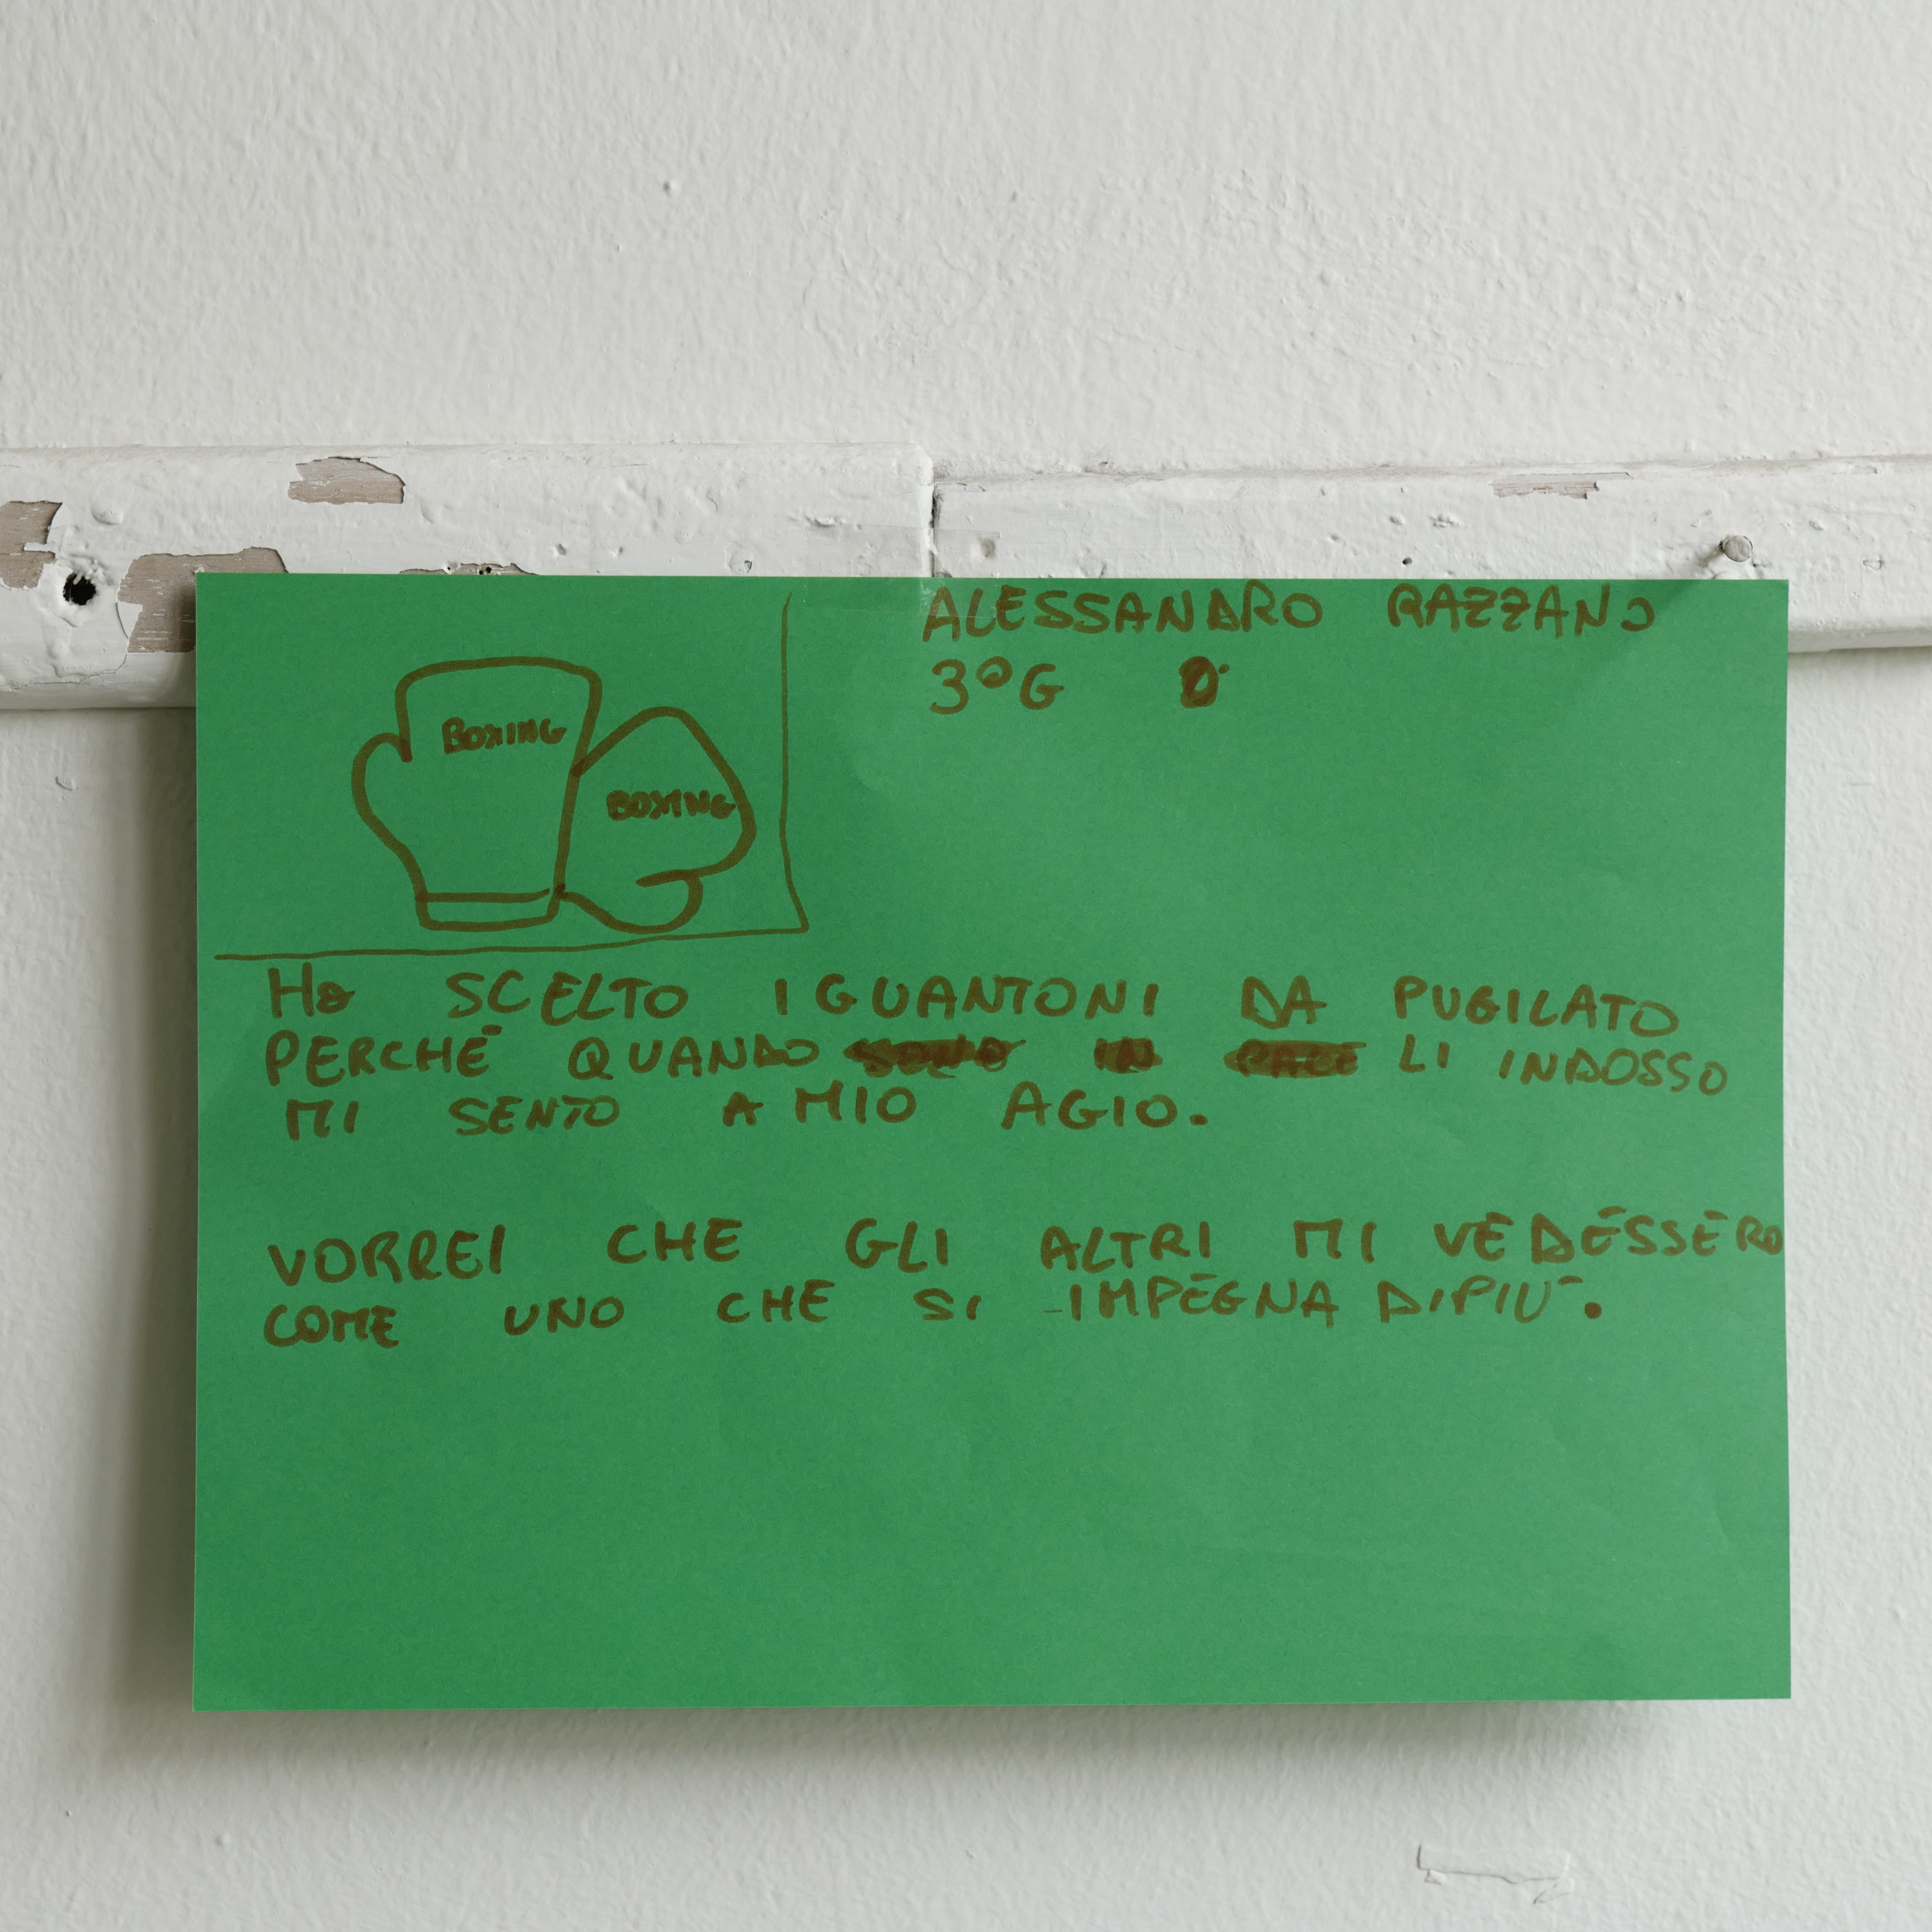 ALESSANDRO RAZZANO
3°G
BOXING
BOXING
HO SCELTO I GUANTONI DA PUGILATO
PERCHÉ QUANDO LI INDOSSO
MI SENTO A MIO AGIO.
VORREI CHE GLI ALTRI MI VEDESSERO
COME UNO CHE SI IMPEGNA DI PIÙ.